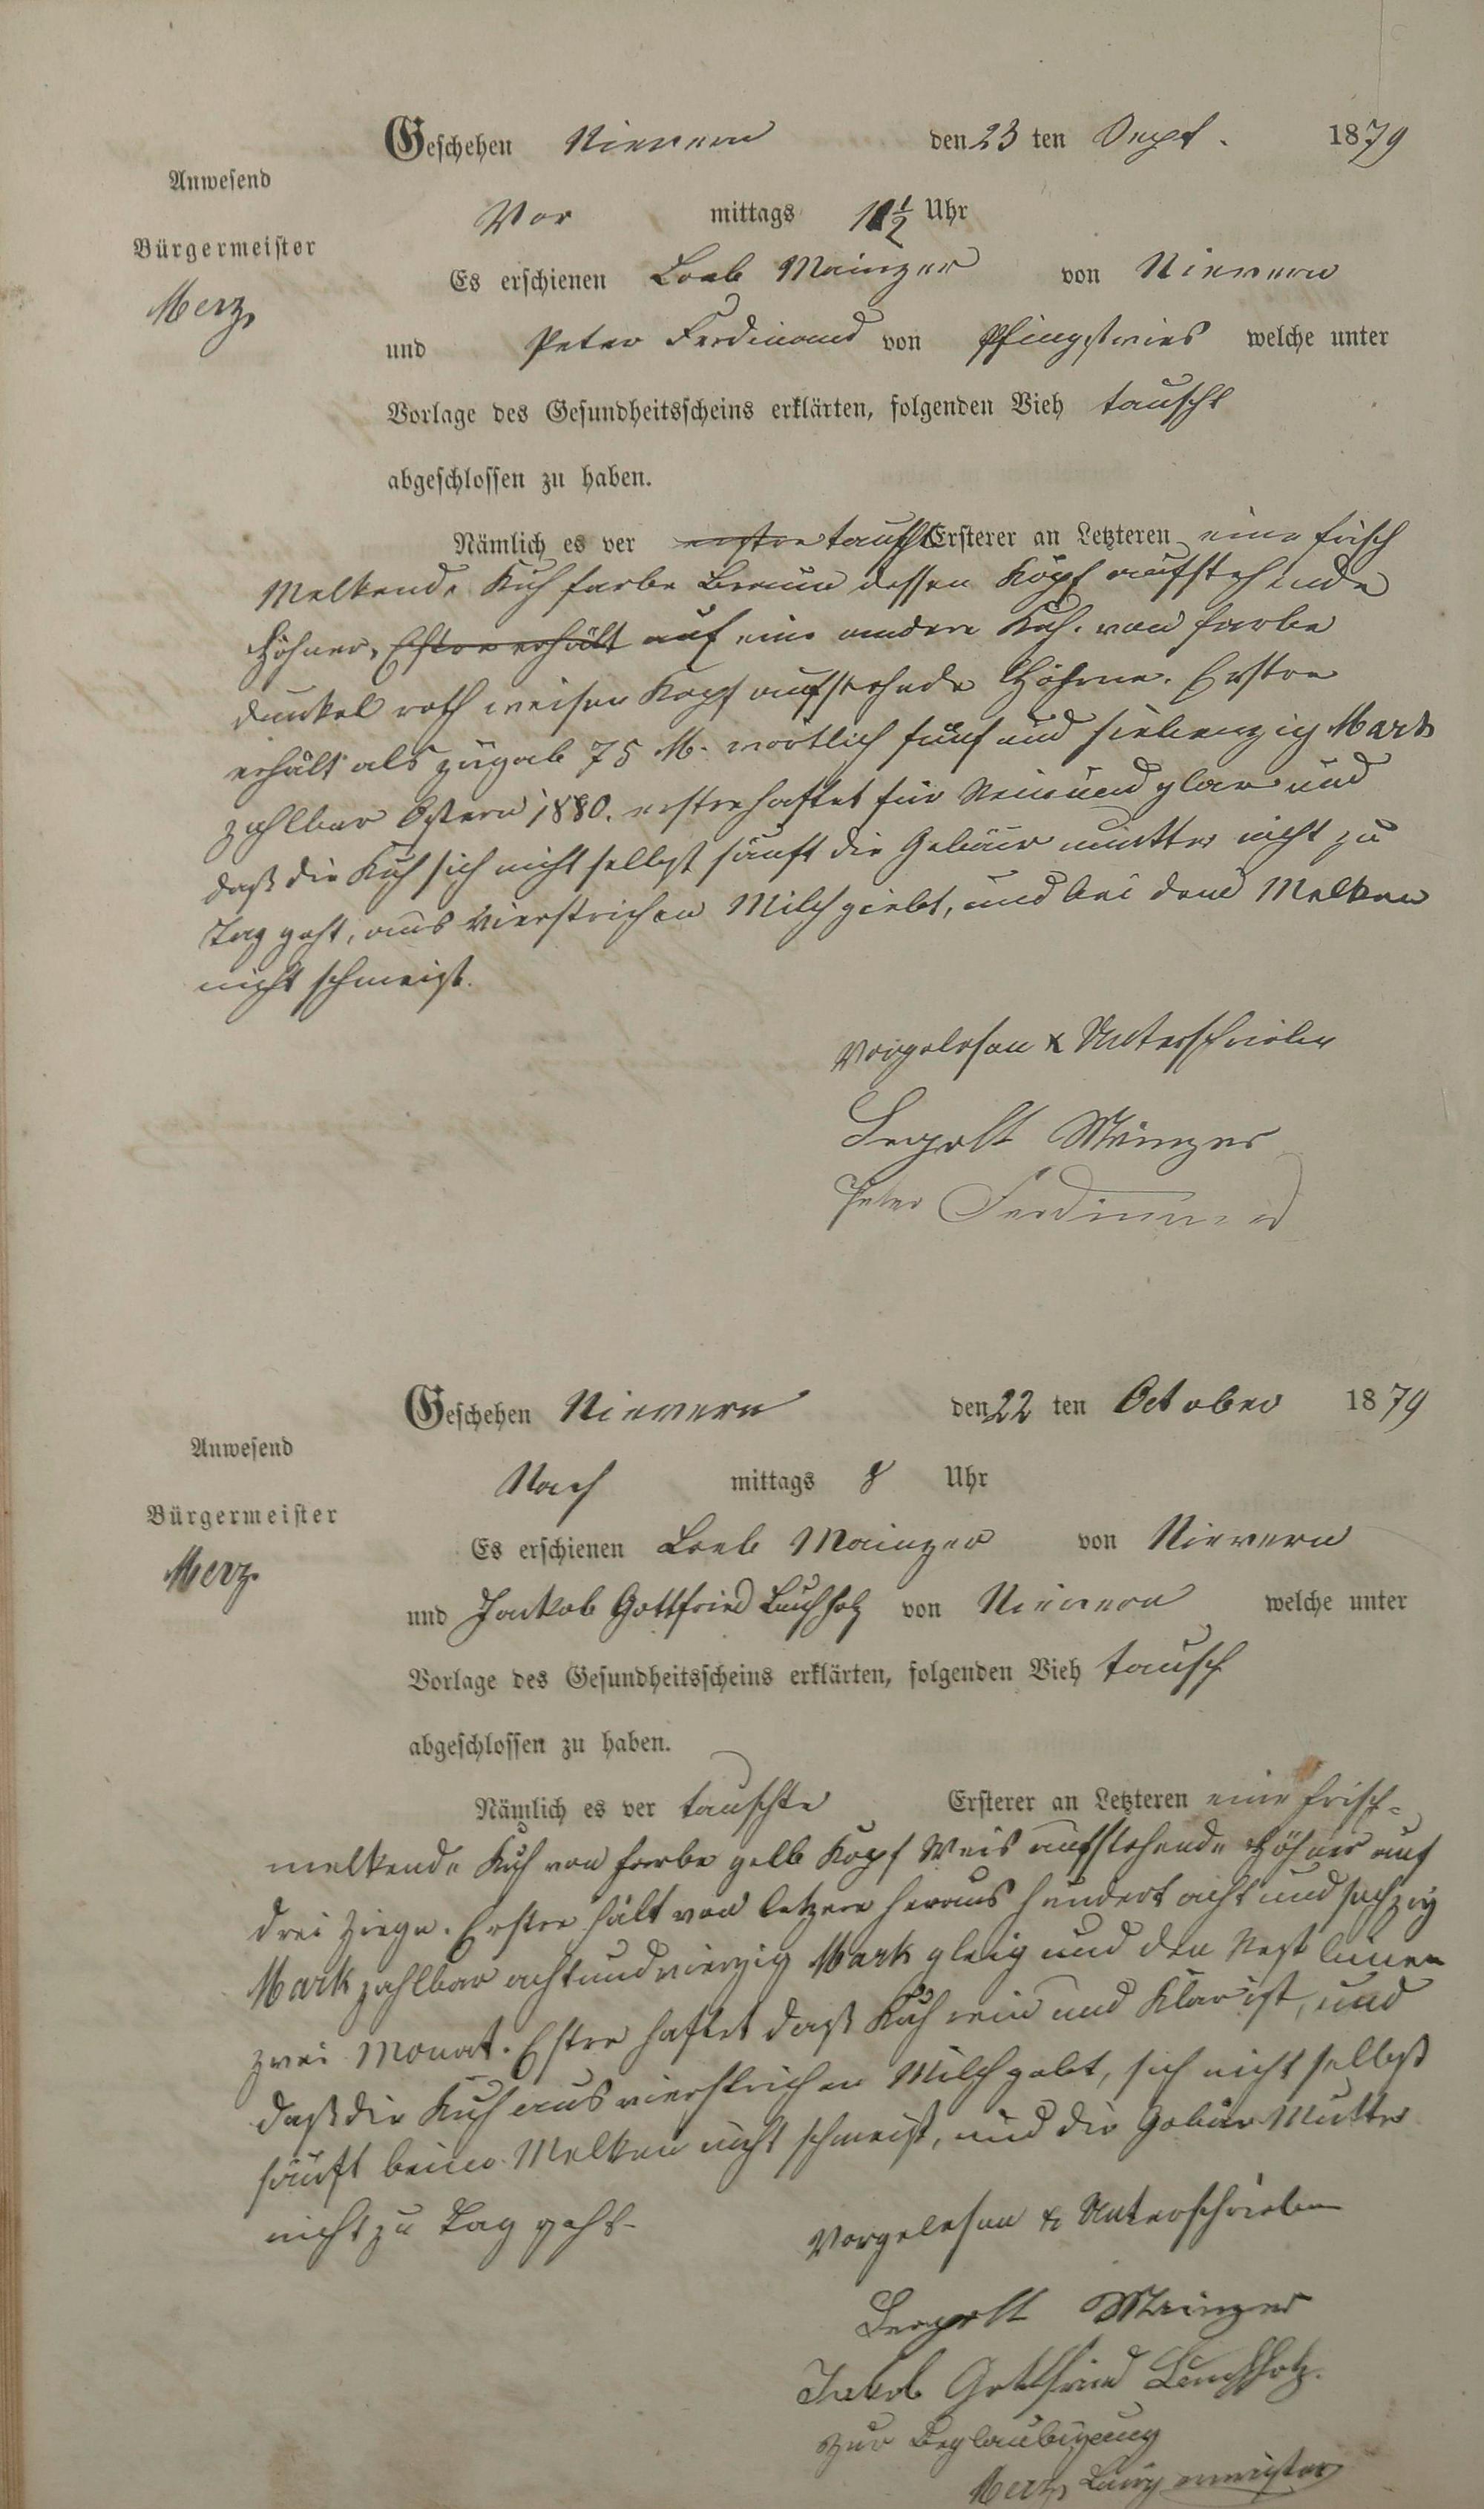 Geschehen Nievern den 23 ten Sept. 1879
Anwesend
Vor mittags 11½ Uhr
Bürgermeister
Es erschienen Loeb Mainzer von Nievern
Merz,
und Peter Ferdinand von Pfingstwies welche unter
Vorlage des Gesundheitsscheins erklärten, folgenden Vieh tauscht
abgeschlossen zu haben.
Nämlich es ver tauscht Ersterer an Letzteren eine frisch
Melkende Kuh farbe Braun dessen Kopf aufstehende
Höhner, Estre erhält auf eine andere Kuh. von farbe
dunkel roth weisen Kopf aufstehnde Höhrne. Erstre
erhält als zugab 75 M. wörtlich fünf und siebenzig Mark
zahlbar Ostern 1880. erstre haftet für Rein und glar und
daß die Kuh sich nicht selbst säuft die Gebäur mutter nicht zu
Tag geht, aus vierstrichen Milch giebt, und bei dem Melken
nicht schmeißt.
Vorgelesen & Unterschrieben
Leopolt Mainzer
Peter Ferdinand
Geschehen Nievern den 22 ten October 1879
Anwesend
Nach mittags 8 Uhr
Bürgermeister
Es erschienen Loeb Mainzer von Nievern
Merz.
und Jackob Gottfried Buchholz von Nievern welche unter
Vorlage des Gesundheitsscheins erklärten, folgenden Vieh tausch
abgeschlossen zu haben.
Nämlich es ver tauschte Ersterer an Letzteren eine frisch-
melkende Kuh von farbe gelb Kopf Weis aufstehende Höhner auf
drei Ziege. Erstre hält von letzere heraus hundert acht und sechzig
Mark zahlbar achtundvierzig Mark gleig und den Rest binnen
zwei Monat. Estre haftet daß Kuh rein und Klar ist, und
daß die Kuh aus vierstrichen Milch gebt, sich nicht selbst
säuft beim Melken nicht schmeist, und die Gebär Mutter
nicht zu Tag geht.
Vorgelesen & Unterschrieben
Leopolt Mainzer
Jakob Gottfried Buchholz.
Zur Beglaubigung
Merz, Bürgermeister